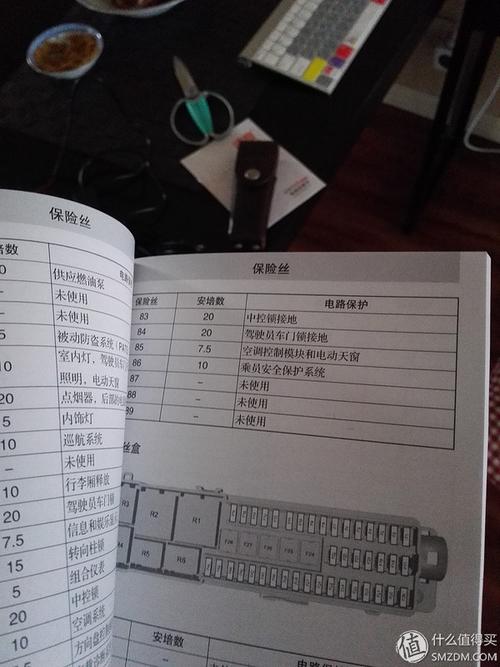 保险丝
安培数
电路
供应燃油泵
– 未使用
– 未使用
5 被动防盗系统 (PA
10 室内灯, 驾驶员车门
照明, 电动天窗
20 点烟器, 后部的
5 内饰灯
10 巡航系统
– 未使用
10 行李厢释放
20 驾驶员车门锁
7.5 信息和娱乐
15 转向柱锁
5 组合仪表
20 中控锁
10 空调系统
方向盘
保险丝
保险丝 安培数 电路保护
83 20 中控锁接地
84 20 驾驶员车门锁接地
85 7.5 空调控制模块和电动天窗
86 10 乘员安全保护系统
87 – 未使用
88 – 未使用
89 – 未使用
丝盒
R3 R2 R1
R5 R6
安培数 电路保护
值 什么值得买
SMZDM.COM